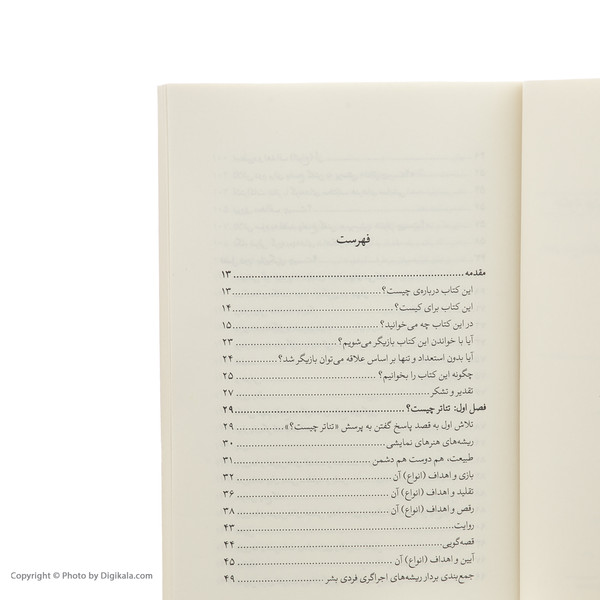 فهرست
مقدمه ........ ۱۳
این کتاب درباره‌ی چیست؟ ........ ۱۳
این کتاب برای کیست؟ ........ ۱۴
در این کتاب چه می‌خوانید؟ ........ ۱۵
آیا با خواندن این کتاب بازیگر می‌شویم؟ ........ ۲۳
آیا بدون استعداد و تنها بر اساس علاقه می‌توان بازیگر شد؟ ........ ۲۴
چگونه این کتاب را بخوانیم؟ ........ ۲۵
تقدیر و تشکر ........ ۲۷
فصل اول: تئاتر چیست؟ ........ ۲۹
تلاش اول به قصد پاسخ گفتن به پرسش «تئاتر چیست؟» ........ ۲۹
ریشه‌های هنرهای نمایشی ........ ۳۰
طبیعت، هم دوست هم دشمن ........ ۳۱
بازی و اهداف (انواع) آن ........ ۳۲
تقلید و اهداف (انواع) آن ........ ۳۶
رقص و اهداف (انواع) آن ........ ۳۸
روایت ........ ۴۳
قصه‌گویی ........ ۴۴
آیین و اهداف (انواع) آن ........ ۴۵
جمع‌بندی بردار ریشه‌های اجراگری فردی بشر ........ ۴۹
Copyright © Photo by Digikala.com